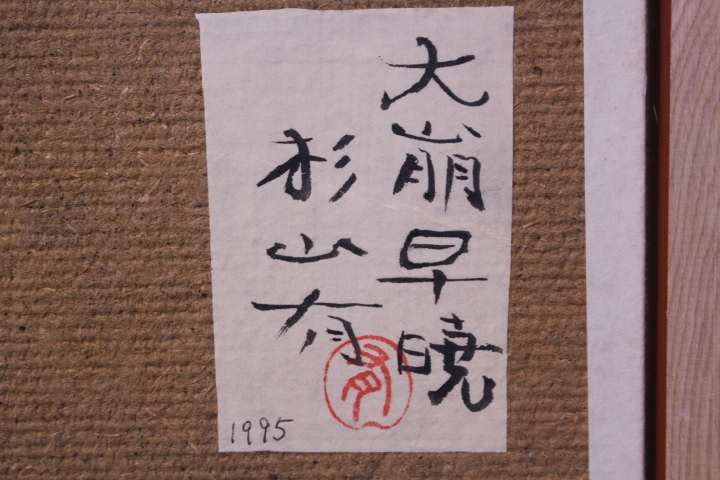 大崩早暁
杉山有
有
1995